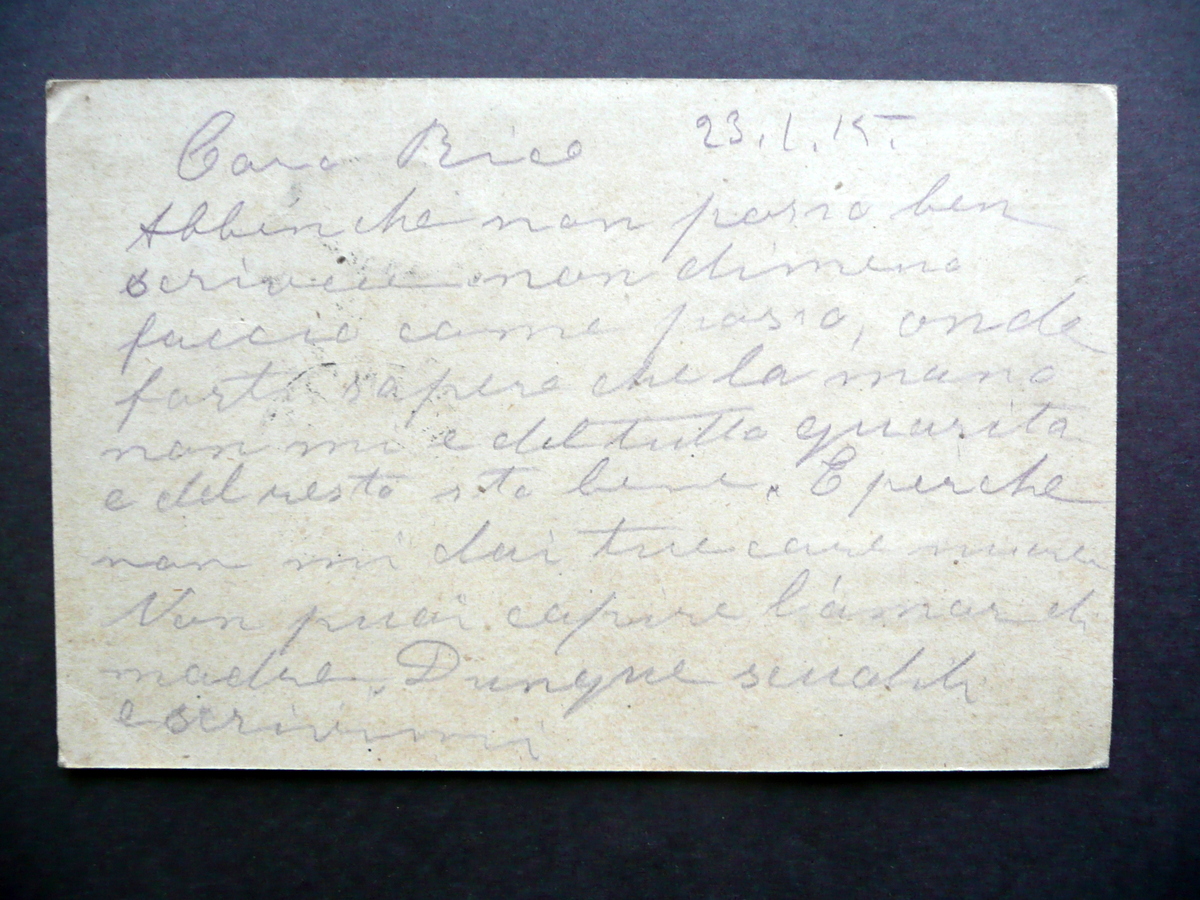 Caro Bice 23.1.15
Abbenche non posso ben
scrivere non dimeno
faccio come posso, onde
farti sapere che la mano
non mi e del tutto guarita
e del resto sto bene. E perche
non mi dai tue care nuove
Non puoi capire l'amor di
madre. Dunque scuoditi
e scrivimi